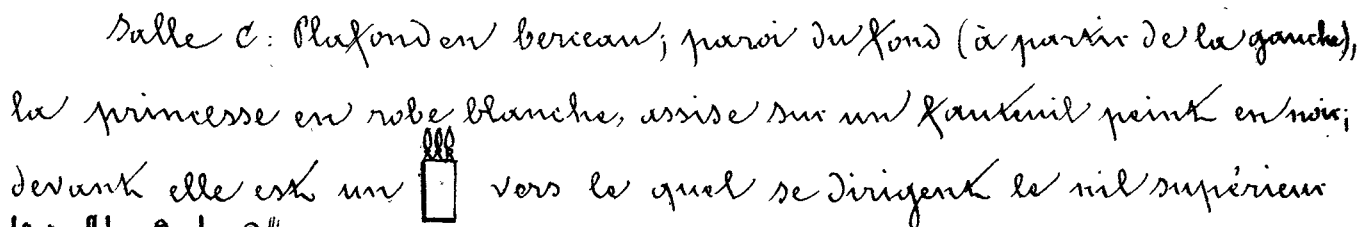 Salle C: Plafond en berceau; paroi du fond (à partir de la gauche),
la princesse en robe blanche, assise sur un fauteuil peint en noir;
devant elle est un vers le quel se dirigent le nil supérieur